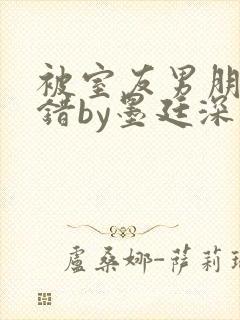 被室友男朋
错by墨廷深
盧桑娜-萨莉